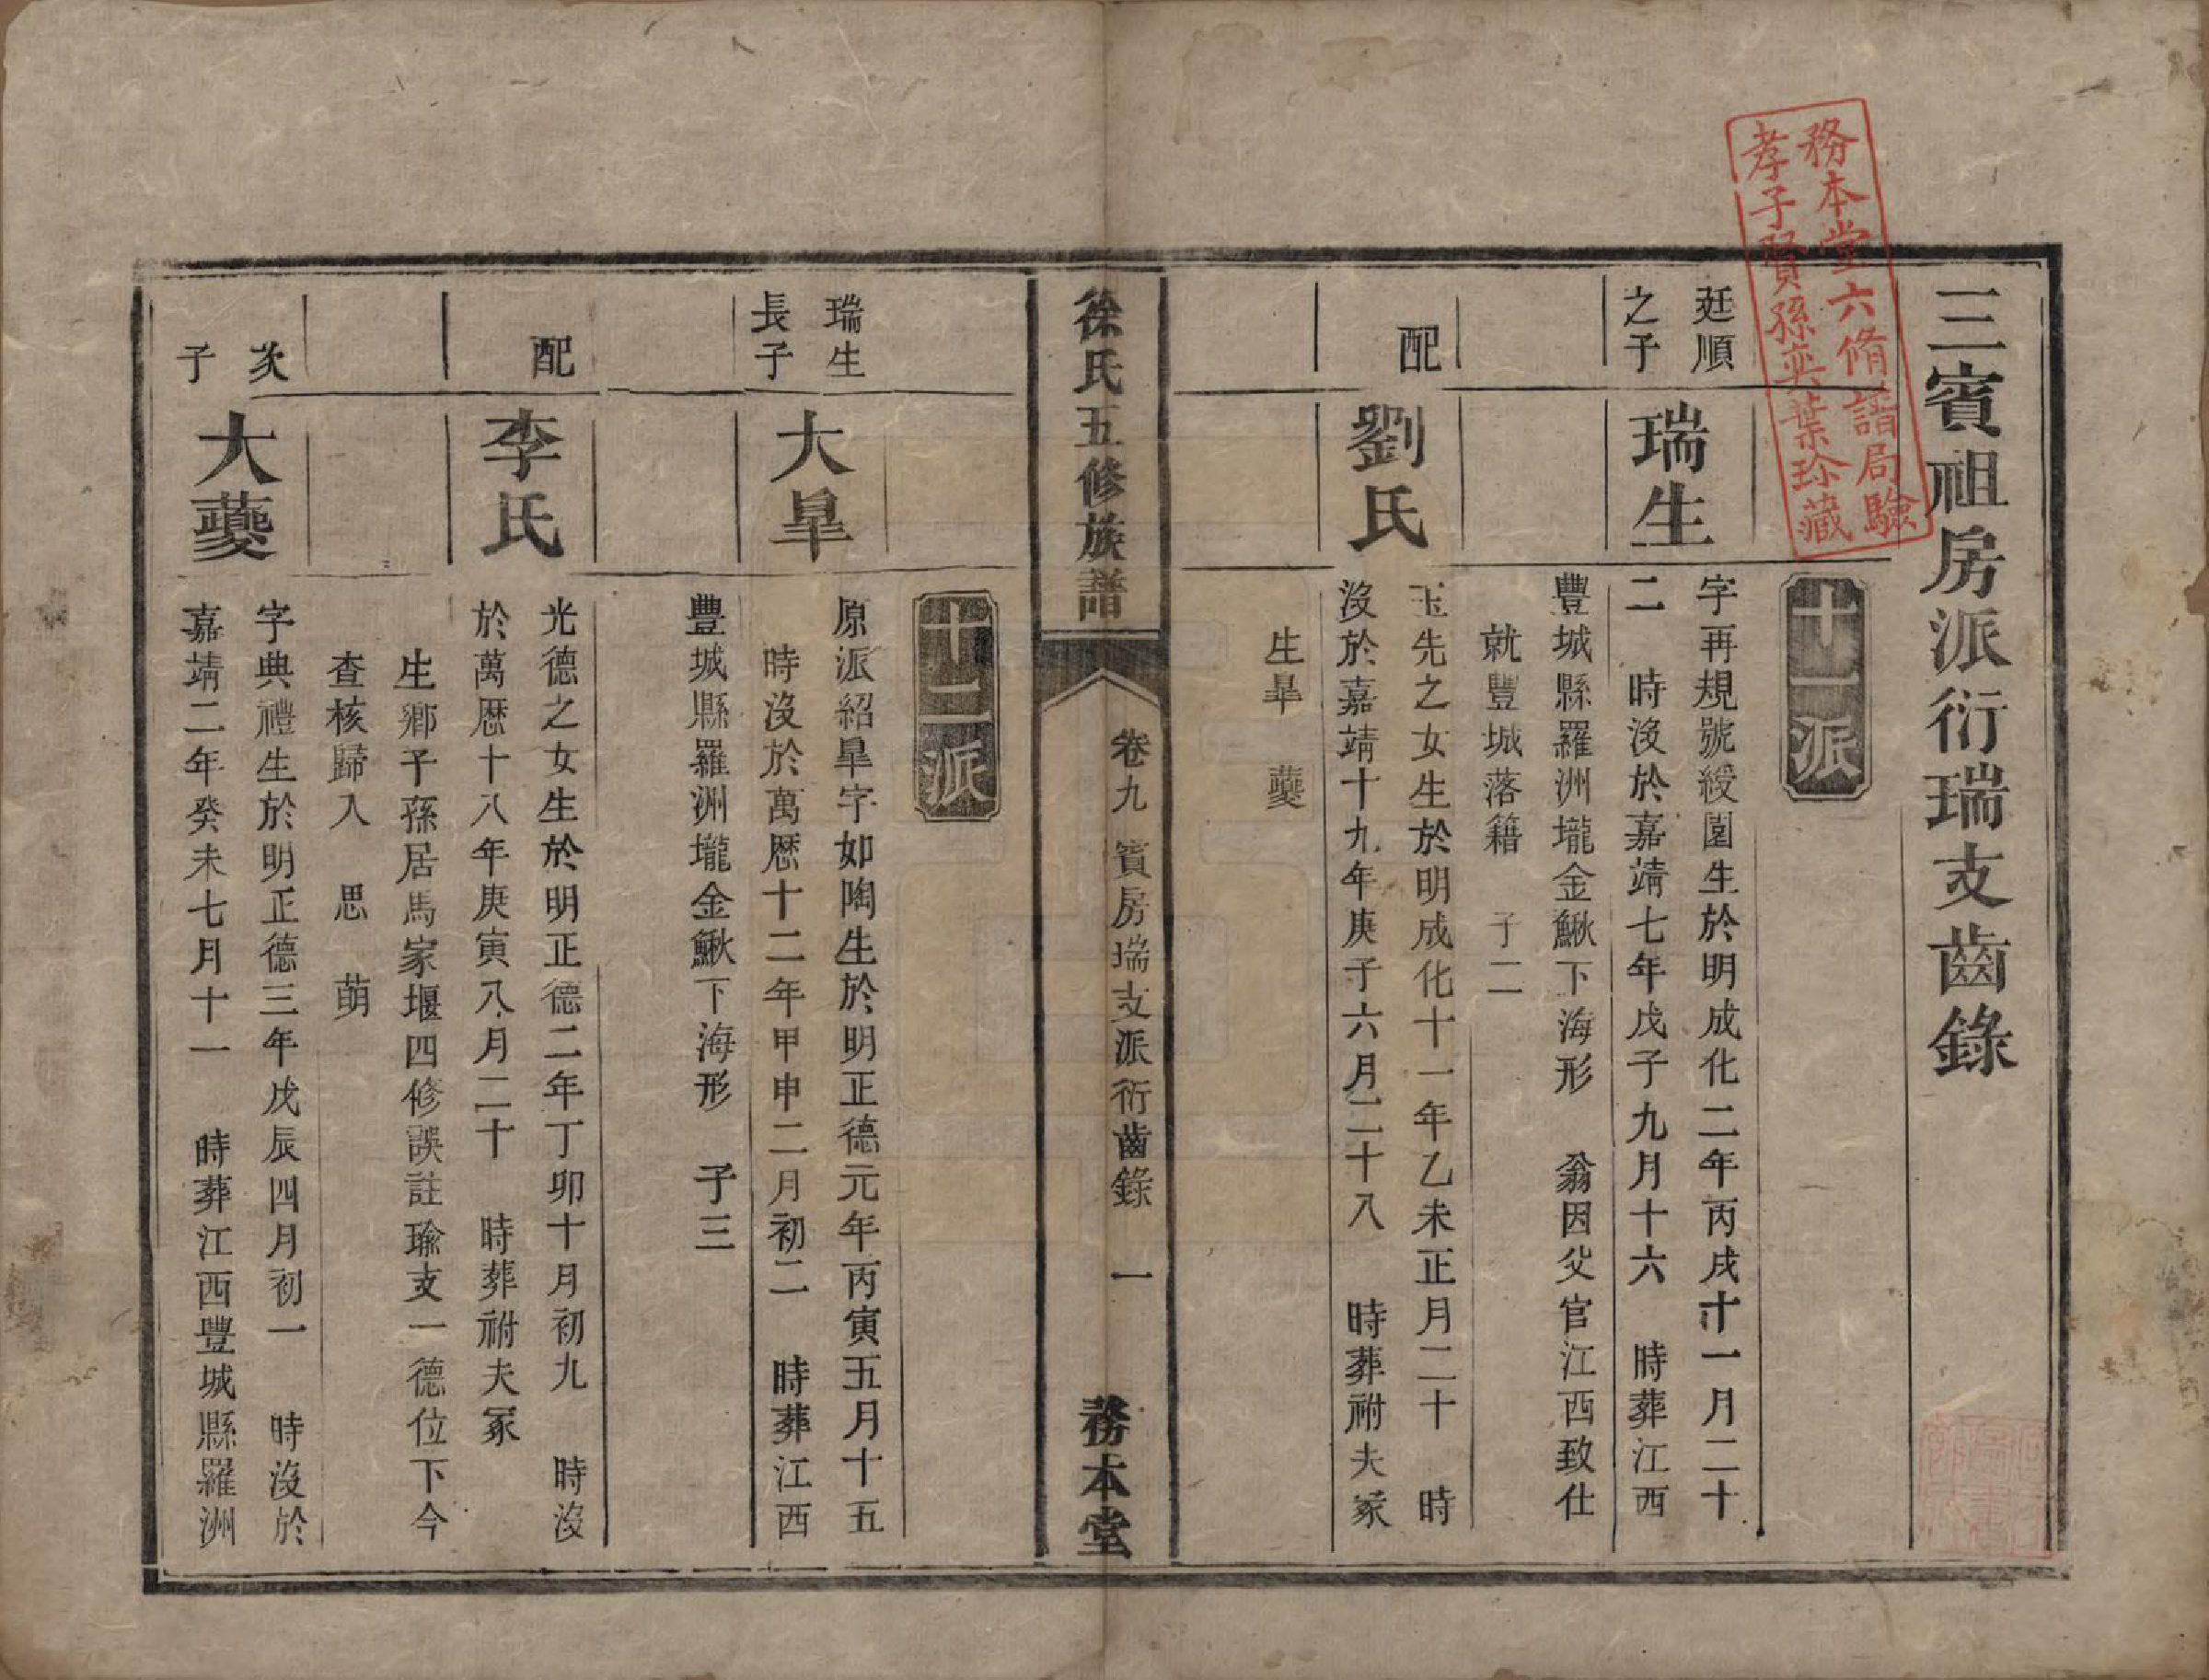 三賓祖房派衍瑞支齒錄
務本堂六脩譜局驗
孝子賢孫奕葉珍藏
十一派
廷順
之子
瑞生
字再規號綬園生於明成化二年丙戌十一月二十
二 時沒於嘉靖七年戊子九月十六 時葬江西
豐城縣羅洲壠金鰍下海形 翁因父官江西致仕
就豐城落籍 子二
配
劉氏
玉先之女生於明成化十一年乙未正月二十 時
沒於嘉靖十九年庚子六月二十八 時葬祔夫冢
生皐 夔
徐氏五修族譜
卷九 賓房瑞支派衍齒錄 一
務本堂
十二派
瑞生
長子
大皐
原派紹皐字如陶生於明正德元年丙寅五月十五
時沒於萬歷十二年甲申二月初二 時葬江西
豐城縣羅洲壠金鰍下海形 子三
配
李氏
光德之女生於明正德二年丁卯十月初九 時沒
於萬歷十八年庚寅八月二十 時葬祔夫冢
生鄉子孫居馬家堰四修誤註瑜支一德位下今
查核歸入 思 萌
次
子
大夔
字典禮生於明正德三年戊辰四月初一 時沒於
嘉靖二年癸未七月十一 時葬江西豐城縣羅洲